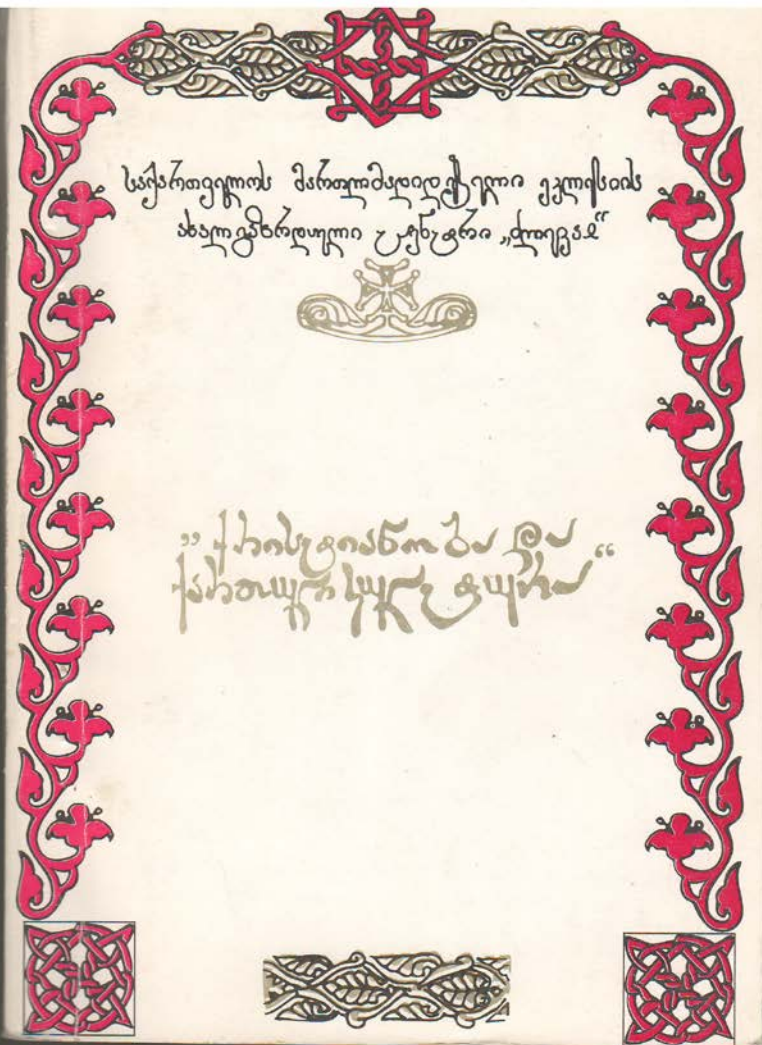 საქართველოს მართლმადიდებელი ეკლესიის
ახალგაზრდული ცენტრი „ძლევაჲ“
„ქრისტიანობა და
ქართული კულტურა“